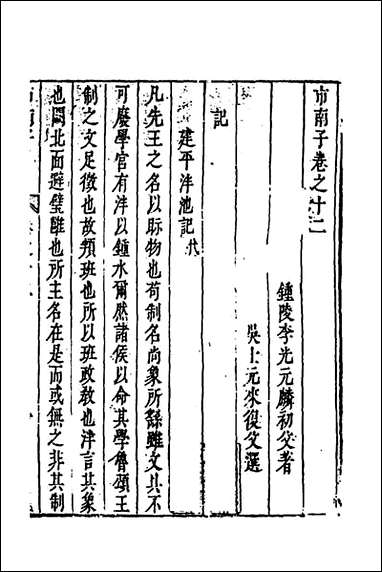 市南子卷之十二
鍾陵李光元麟初父著
吳士元來復父選
記
建平泮池記代
凡先王之名以眎物也苟制名尚象所繇雖文其不
可廢學官有泮以鍾水爾然諸侯以命其學魯頌王
制之文足徵也故頖班也所以班政教也泮言其象
也闕北面避璧雝也所主名在是而或無之非其制